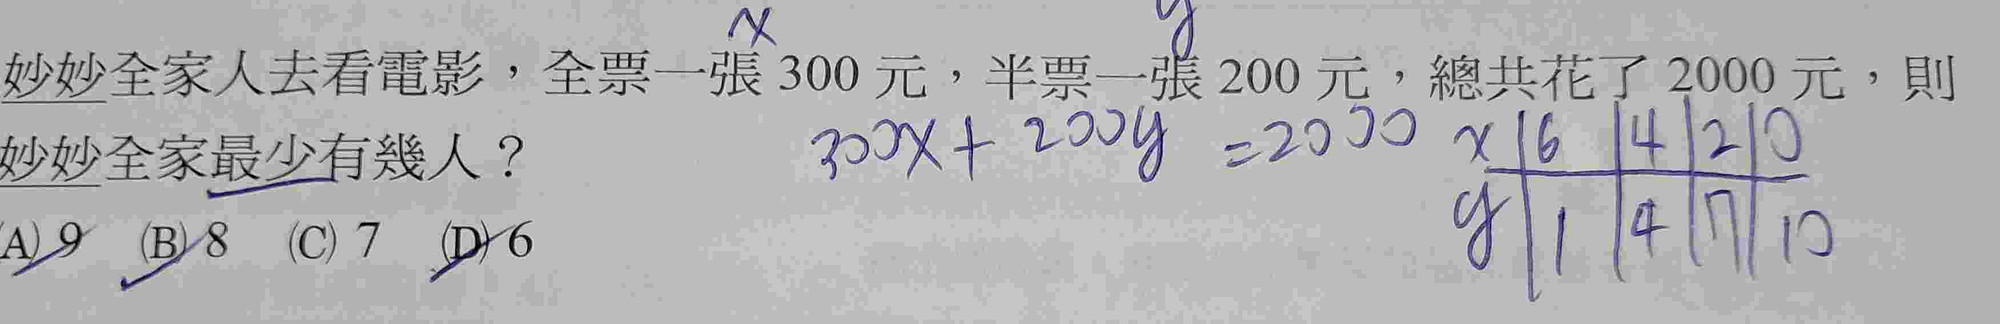 x y
妙妙全家人去看電影，全票一張 300 元，半票一張 200 元，總共花了 2000 元，則
妙妙全家最少有幾人？ 300x + 200y = 2000
x 6 4 2 0
y 1 4 7 10
(A) 9 (B) 8 (C) 7 (D) 6